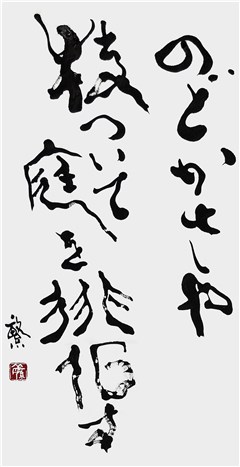 のどかさや
杖ついて庭を徘徊す
繁